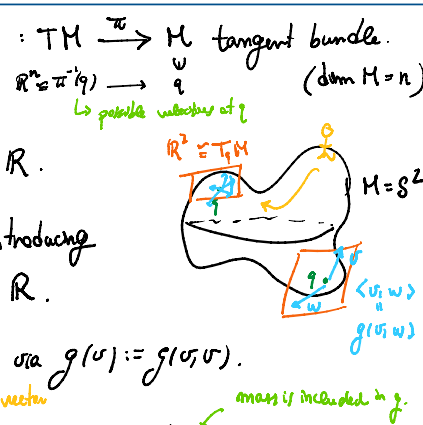 : TM →^π M tangent bundle.
ℝⁿ ≅ π⁻¹(q) → q (dim M = n)
↳ possible velocities at q
ℝ² ≅ T_qM
ℝ.
q
M = S²
troducing
ℝ.
q
v
w
<v, w>
=
g(v, w)
via g(v) := g(v, v).
vector
mass is included in g.